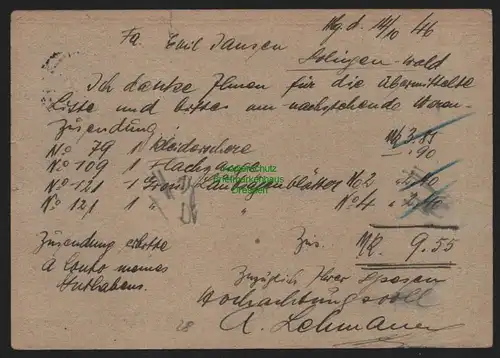 Mg. d. 14/10 46
Fa. Emil Jansen
Solingen-Wald
Ich danke Ihnen für die übermittelte
Liste und bitte um nachstehende Waren-
Zusendung
No 79 1 Kleiderschere Mk 3.85
No 109 1 Flachzange .90
No 121 1 Gros Laubsägenblätter No 2
No 121 1 " No 4
Zusendung erbitte
a Conto meines
Guthabens.
Zus. MK. 9.55
Zuzüglich Ihrer Spesen
Hochachtungsvoll
A. Lehmann
28
Briefmarkenhaus
Dresden